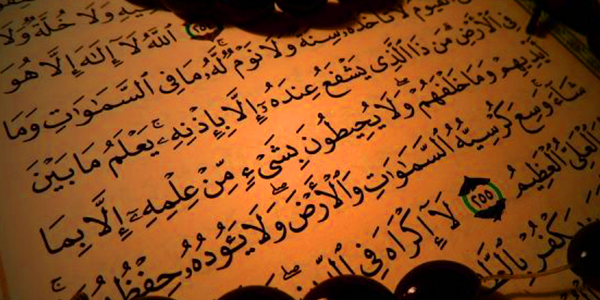 وَلَا خُلَّةٌ وَلَا
٢٥٤ ٱللَّهُ لَآ إِلَٰهَ إِلَّا هُوَ
ٱلْقَيُّومُ لَا تَأْخُذُهُۥ سِنَةٌ وَلَا نَوْمٌ لَّهُۥ مَا فِى ٱلسَّمَٰوَٰتِ وَمَا
فِى ٱلْأَرْضِ مَن ذَا ٱلَّذِى يَشْفَعُ عِندَهُۥٓ إِلَّا بِإِذْنِهِۦ ۚ يَعْلَمُ مَا بَيْنَ
أَيْدِيهِمْ وَمَا خَلْفَهُمْ ۖ وَلَا يُحِيطُونَ بِشَىْءٍ مِّنْ عِلْمِهِۦٓ إِلَّا بِمَا
شَآءَ ۚ وَسِعَ كُرْسِيُّهُ ٱلسَّمَٰوَٰتِ وَٱلْأَرْضَ ۖ وَلَا يَـُٔودُهُۥ حِفْظُ
ٱلْعَلِىُّ ٱلْعَظِيمُ ٢٥٥ لَآ إِكْرَاهَ فِى
يَكْفُرْ